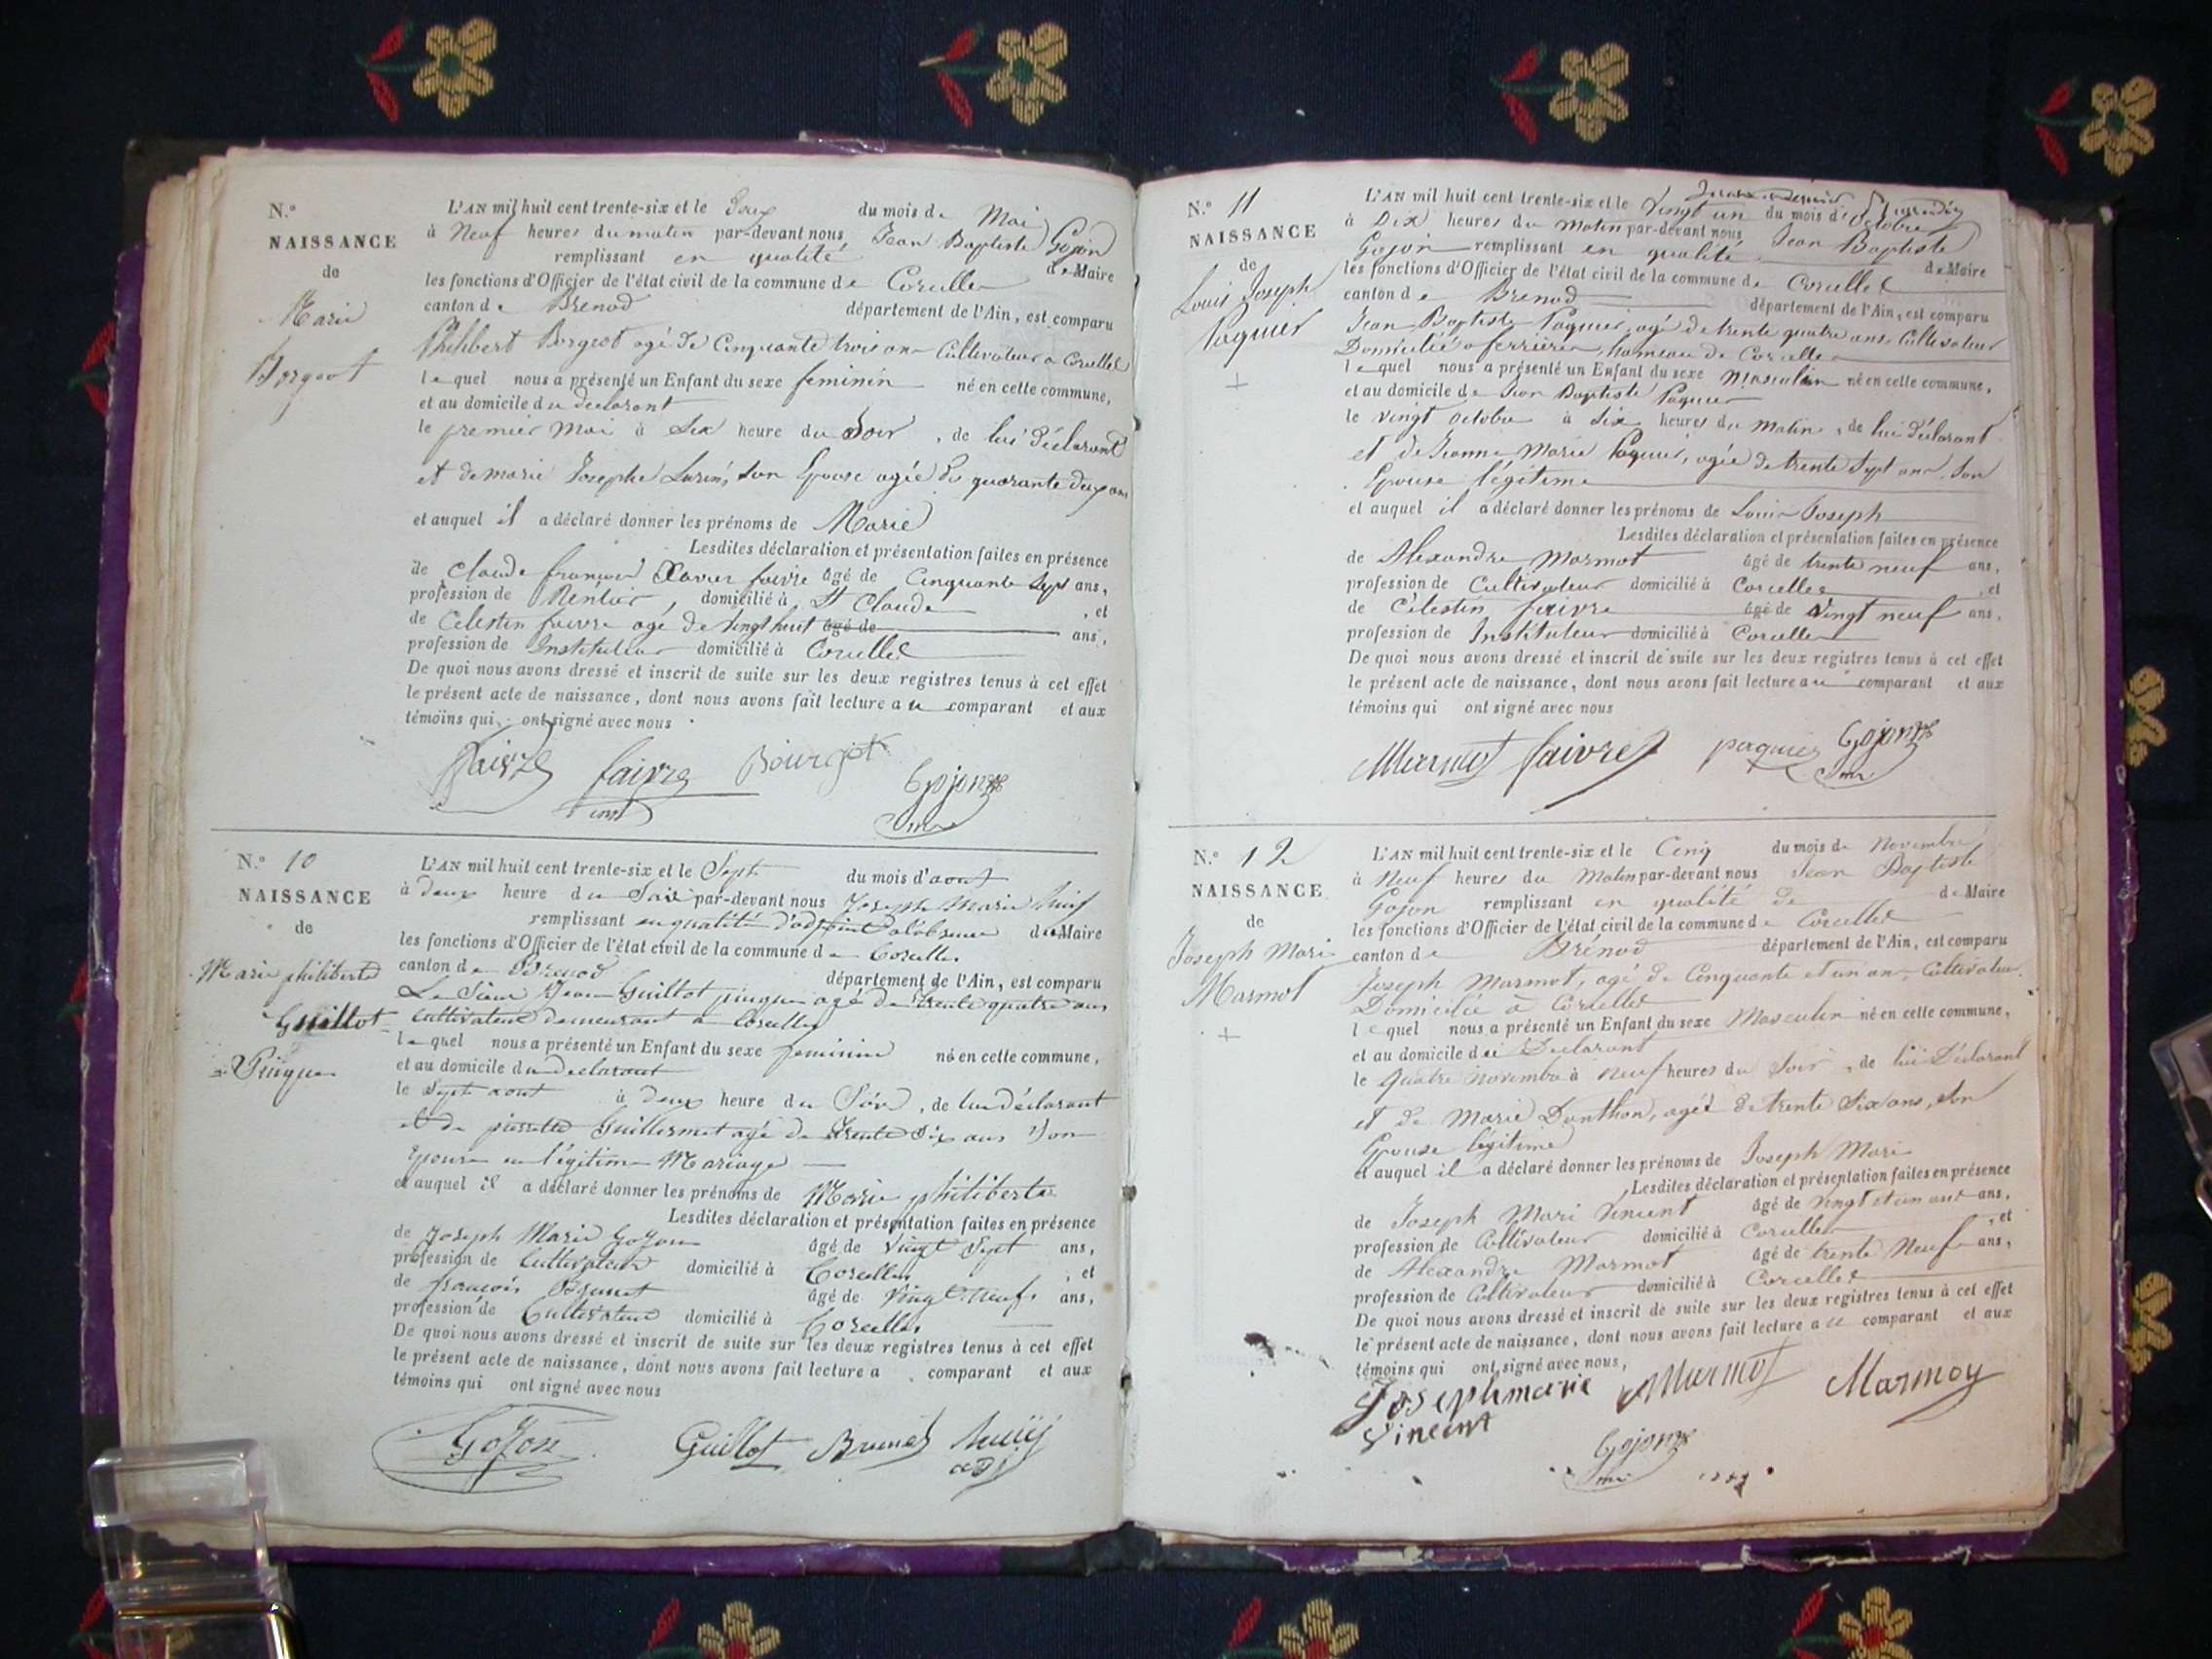 N.o
NAISSANCE
de
Marie
Borgeot
L'AN mil huit cent trente-six et le Deux du mois de Mai
à Neuf heures du matin par-devant nous Jean Baptiste Gojon
remplissant en qualité de Maire
les fonctions d'Officier de l'état civil de la commune de Corcelles
canton de Brenod département de l'Ain, est comparu
Philibert Borgeot agé de Cinquante trois ans Cultivateur a Corcelles
lequel nous a présenté un Enfant du sexe feminin né en cette commune,
et au domicile du declarant
le premier Mai à Six heure du Soir, de lui déclarant
et de marie Josephe son Epouse agée de quarante deux ans
et auquel il a déclaré donner les prénoms de Marie
Lesdites déclaration et présentation faites en présence
de Claude françois Xavier faivre âgé de Cinquante Sept ans,
profession de Rentier, domicilié à St Claude, et
de Célestin faivre agé de vingt huit âgé de ans,
profession de Instituteur domicilié à Corcelles
De quoi nous avons dressé et inscrit de suite sur les deux registres tenus à cet effet
le présent acte de naissance, dont nous avons fait lecture au comparant et aux
témoins qui ont signé avec nous
faivre faivre Bourgot Gojon
N.o 10
NAISSANCE
de
Marie philiberte
Guillot
Pingue
L'AN mil huit cent trente-six et le Sept du mois d'aout
à deux heure du Soir par-devant nous Joseph Marie
remplissant en qualité d'adjoint a labsence de Maire
les fonctions d'Officier de l'état civil de la commune de Corcelles
canton de Brenod département de l'Ain, est comparu
Le Sieur Jean Guillot pingue agé de trente quatre ans
Cultivateur demeurant a Corcelles
lequel nous a présenté un Enfant du sexe feminine né en cette commune,
et au domicile du declarant
le Sept aout à deux heure du Soir, de lui déclarant
et de pierrette Guillermet agé de trente Six ans Son
Epouse en légitime Mariage
et auquel il a déclaré donner les prénoms de Marie philiberte
Lesdites déclaration et présentation faites en présence
de Joseph Marie Gojon âgé de vingt Sept ans,
profession de Cultivateur domicilié à Corcelles, et
de françois Brunet âgé de vingt neuf ans,
profession de Cultivateur domicilié à Corcelles
De quoi nous avons dressé et inscrit de suite sur les deux registres tenus à cet effet
le présent acte de naissance, dont nous avons fait lecture a comparant et aux
témoins qui ont signé avec nous
Gojon Guillot Brunet adj
N.o 11
NAISSANCE
de
Louis Joseph
Paquier
L'AN mil huit cent trente-six et le vingt un du mois d'Octobre
à Dix heures du Matin par-devant nous Jean Baptiste
Gojon remplissant en qualité de Maire
les fonctions d'Officier de l'état civil de la commune de Corcelles
canton de Brenod département de l'Ain, est comparu
Jean Baptiste Paquier, agé de trente quatre ans, Cultivateur
Domicilié a ferrières, hameau de Corcelles
lequel nous a présenté un Enfant du sexe Masculin né en cette commune,
et au domicile de Jean Baptiste Paquier
le vingt octobre à Six heures du Matin, de lui déclarant
et de Jeanne Marie Paquier, agée de trente Sept ans, Son
Epouse légitime
et auquel il a déclaré donner les prénoms de Louis Joseph
Lesdites déclaration et présentation faites en présence
de Alexandre Marmot âgé de trente neuf ans,
profession de Cultivateur domicilié à Corcelles, et
de Célestin faivre âgé de vingt neuf ans,
profession de Instituteur domicilié à Corcelles
De quoi nous avons dressé et inscrit de suite sur les deux registres tenus à cet effet
le présent acte de naissance, dont nous avons fait lecture au comparant et aux
témoins qui ont signé avec nous
Marmot faivre paquier Gojon
N.o 12
NAISSANCE
de
Joseph Mari
Marmot
L'AN mil huit cent trente-six et le Cinq du mois de Novembre
à Neuf heures du Matin par-devant nous Jean Baptiste
Gojon remplissant en qualité de de Maire
les fonctions d'Officier de l'état civil de la commune de Corcelles
canton de Brénod département de l'Ain, est comparu
Joseph Marmot, agé de Cinquante et un an, Cultivateur
Domicilié à Corcelles
lequel nous a présenté un Enfant du sexe Masculin né en cette commune,
et au domicile du Declarant
le Quatre Novembre à neuf heures du Soir, de lui Déclarant
et de Marie Danthon, agée de trente Six ans, Son
Epouse légitime
et auquel il a déclaré donner les prénoms de Joseph Mari
Lesdites déclaration et présentation faites en présence
de Joseph Mari Vincent âgé de vingt et un ans ans,
profession de Cultivateur domicilié à Corcelles, et
de Alexandre Marmot âgé de trente Neuf ans,
profession de Cultivateur domicilié à Corcelles
De quoi nous avons dressé et inscrit de suite sur les deux registres tenus à cet effet
le présent acte de naissance, dont nous avons fait lecture au comparant et aux
témoins qui ont signé avec nous,
Joseph marie Marmot Marmoy
Vincent
Gojon